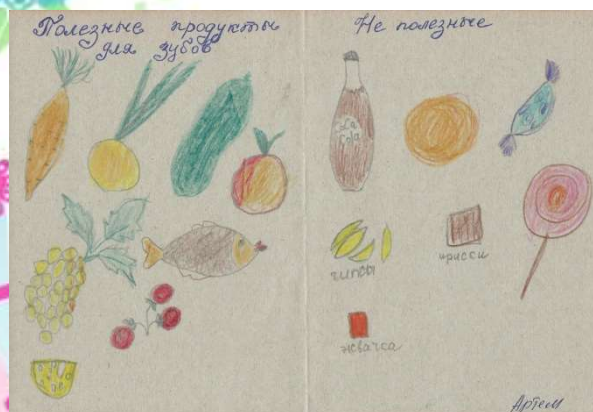 Полезные продукты
для зубов
Не полезные
Coca
Cola
чипсы
ирисси
жвачса
Артем